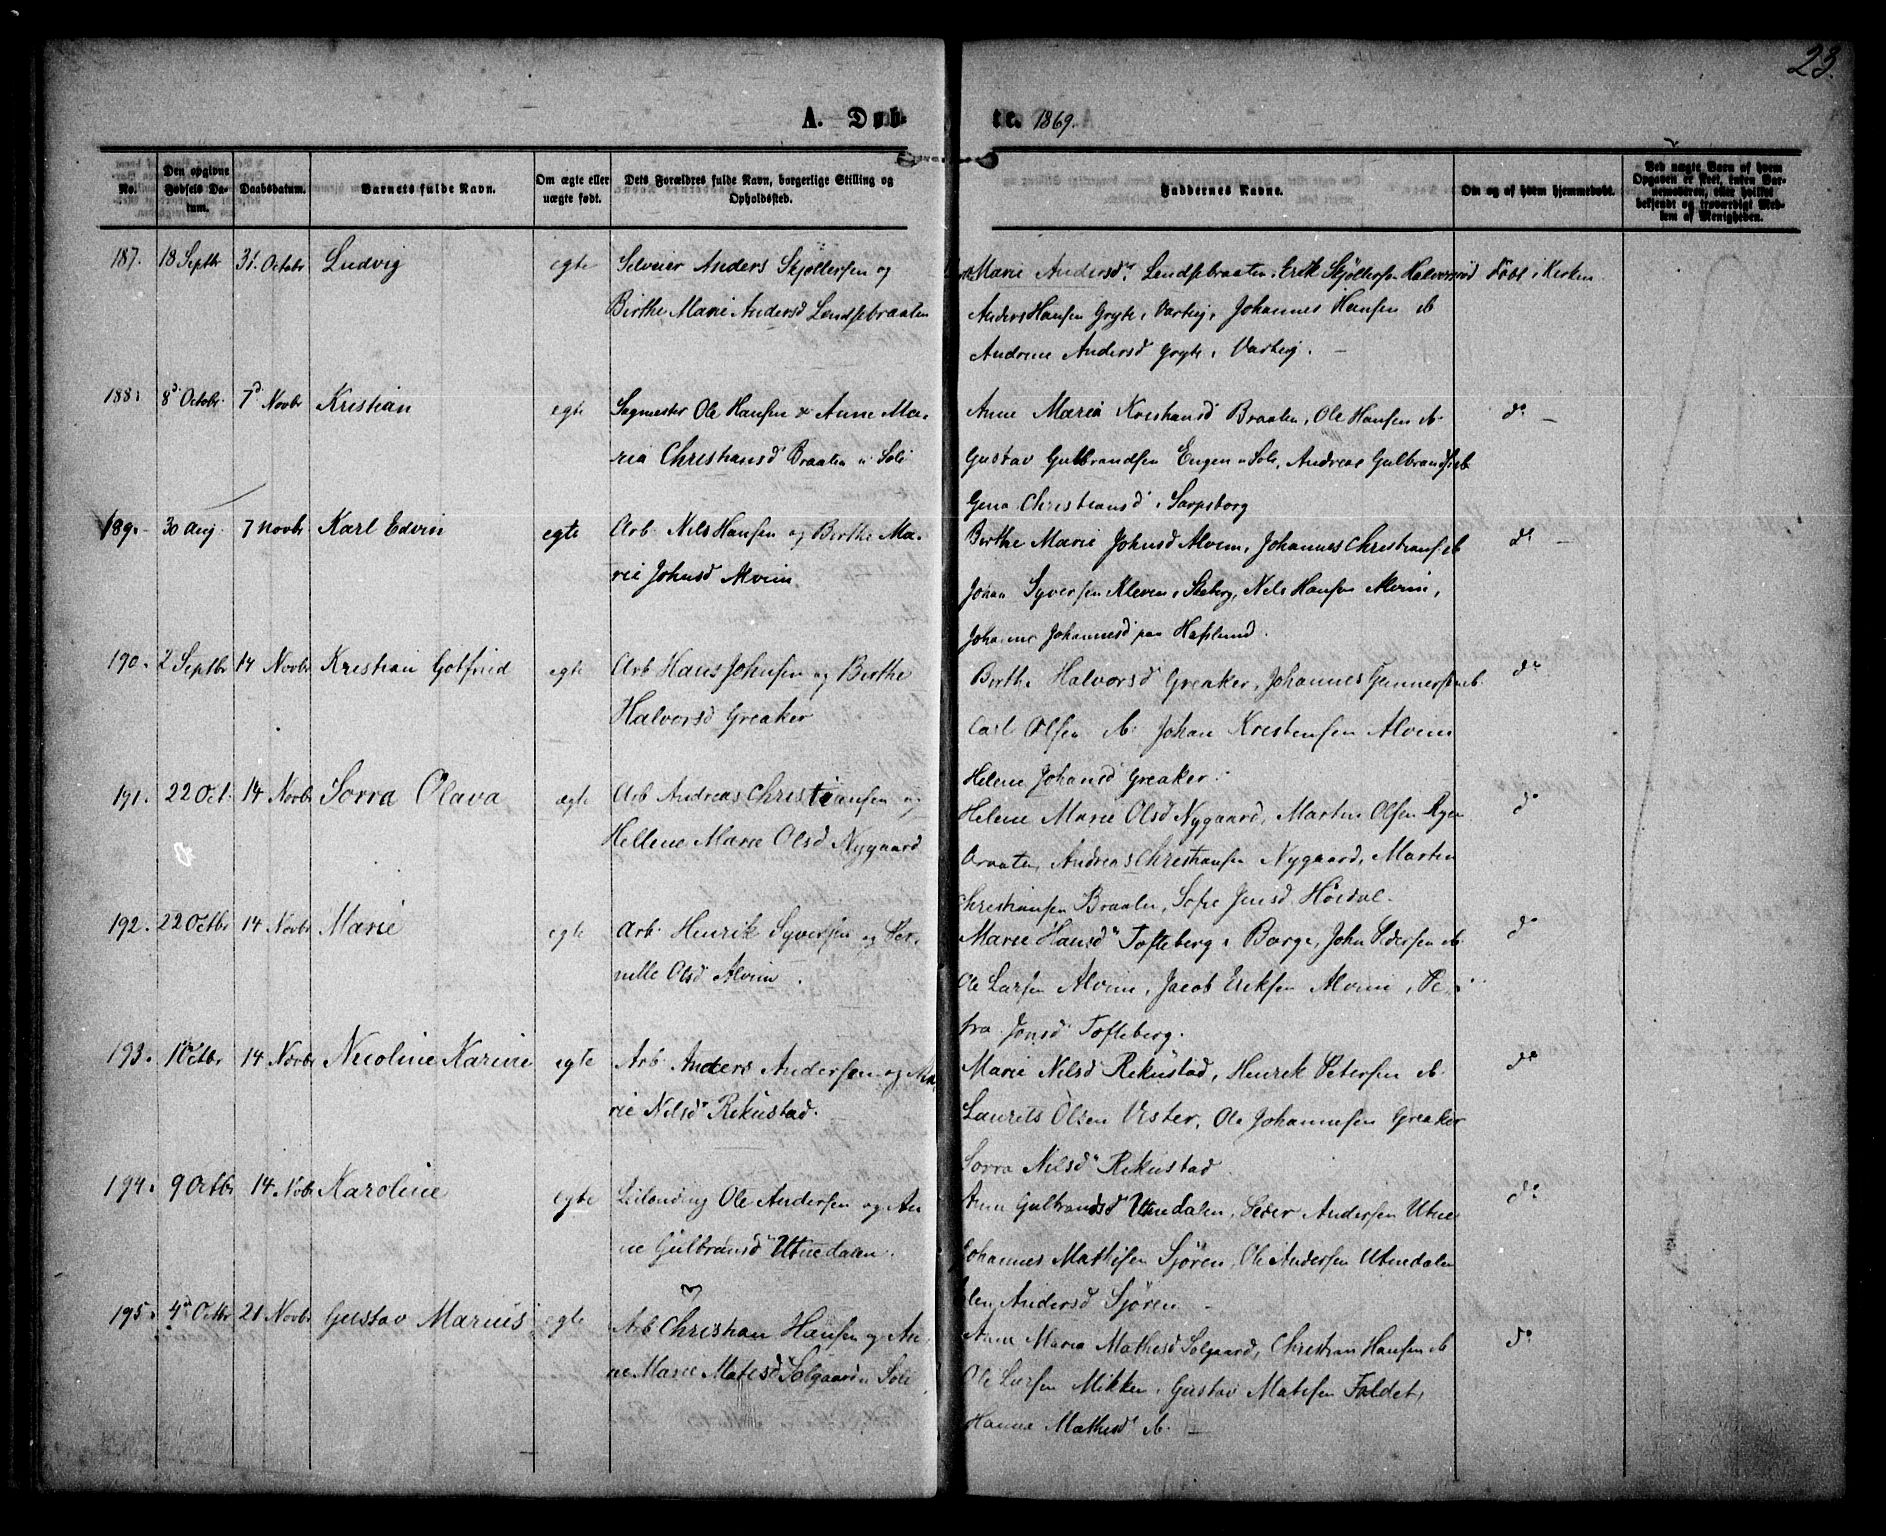 23.
A. Døbte. 1869.
No. | Den opgivne Fødsels Datum. | Daabsdatum. | Barnets fulde Navn. | Om ægte eller uægte født. | Dets Forældres fulde Navn, borgerlige Stilling og Opholdssted. | Faddernes Navne. | Om og af hvem hjemmedøbt. | Ved uægte Barn af hvem Opgaven er skeet, enten Barnemoderen, eller hvilket bekjendt og troværdigt Medlem af Menigheden.
187. 18 Septbr 31. Octobr Ludvig egte Selveier Anders Skjöllersen og
Birthe Marie Andersd Lendsebraaten
Marie Andersd. Lendsebraaten, Erik Skjöllersen Halvorsröd Döbt i Kirken
Anders Hansen Gryte i Varteig, Johannes Hansen ib
Andrine Andersd Gryte i Varteig. –
188. 8d Octobr. 7d Novbr Kristian egte Sagmester Ole Hansen & Anne Ma-
ria Christiansd Braaten u Soli
Anne Maria Kristiansd Braaten, Ole Hansen ib. do –
Gustav Gulbrandsen Engen u Soli, Andreas Gulbrands ib
Gena Christiansd i Sarpsborg
189. 30 Aug. 7 Novbr Karl Edvin egte Arb. Nils Hansen og Birthe Ma-
rie Johnsd Alvim.
Birthe Marie Johnsd Alvim, Johannes Christians ib do –
Johan Syversen Kleven i Skeberg, Nils Hansen Alvim,
Johanne Johannesd paa Hafslund.
190. 2 Septbr 14 Novbr Kristian Gotfried egte Arb Hans Johnsen og Birthe
Halvorsd Greaker
Birthe Halvorsd Greaker, Johannes Gunnersen ib. do
Carl Olsen ib. Johan Kristensen Alvim
Helene Johansd Greaker.
191. 22 Oct. 14 Novbr Sorra Olava ægte Arb Andreas Christiansen og
Hellene Marie Olsd Nygaard
Helene Marie Olsd Nygaard, Martin Olsen Ryen do
Braaten, Andreas Christiansen Nygaard, Martin
Christiansen Braaten, Sofie Jensd Höidal.
192. 22 Octbr 14 Novbr Marie egte Arb. Henrik Syversen og Per-
nille Olsd Alvim.
Marie Hansd Tofteberg i Borge, John Pedersen ib. do
Ole Larsen Alvim, Jacob Eriksen Alvim, Pe-
tra Jonsd Tofteberg.
193. 1 Octbr 14 Novbr Nicoline Karine egte Arb Anders Andersen og Ma-
rie Nilsd Rekustad.
Marie Nilsd Rekustad, Henrik Petersen ib. do
Laurits Olsen Vister, Ole Johannesen Greaker
Sorra Nilsd Rekustad
194. 9 Octbr 14 Novbr Karoline egte Leilending Ole Andersen og An-
ne Gulbransd Utnedalen.
Anne Gulbrandsd Utnedalen, Peder Andersen Utne do
Johannes Mathisen Sjören, Ole Andersen Utnedalen
Andersd Sjören –
195. 4d Octbr 21 Novbr Gustav Marius egte Arb Christian Hansen og An-
ne Marie Matisd Solgaard u Soli
Anne Maria Mathisd Solgaard, Christian Hansen ib do
Ole Larsen Mikken, Gustav Matisen Foldet,
Hanna Mathisd ib. –